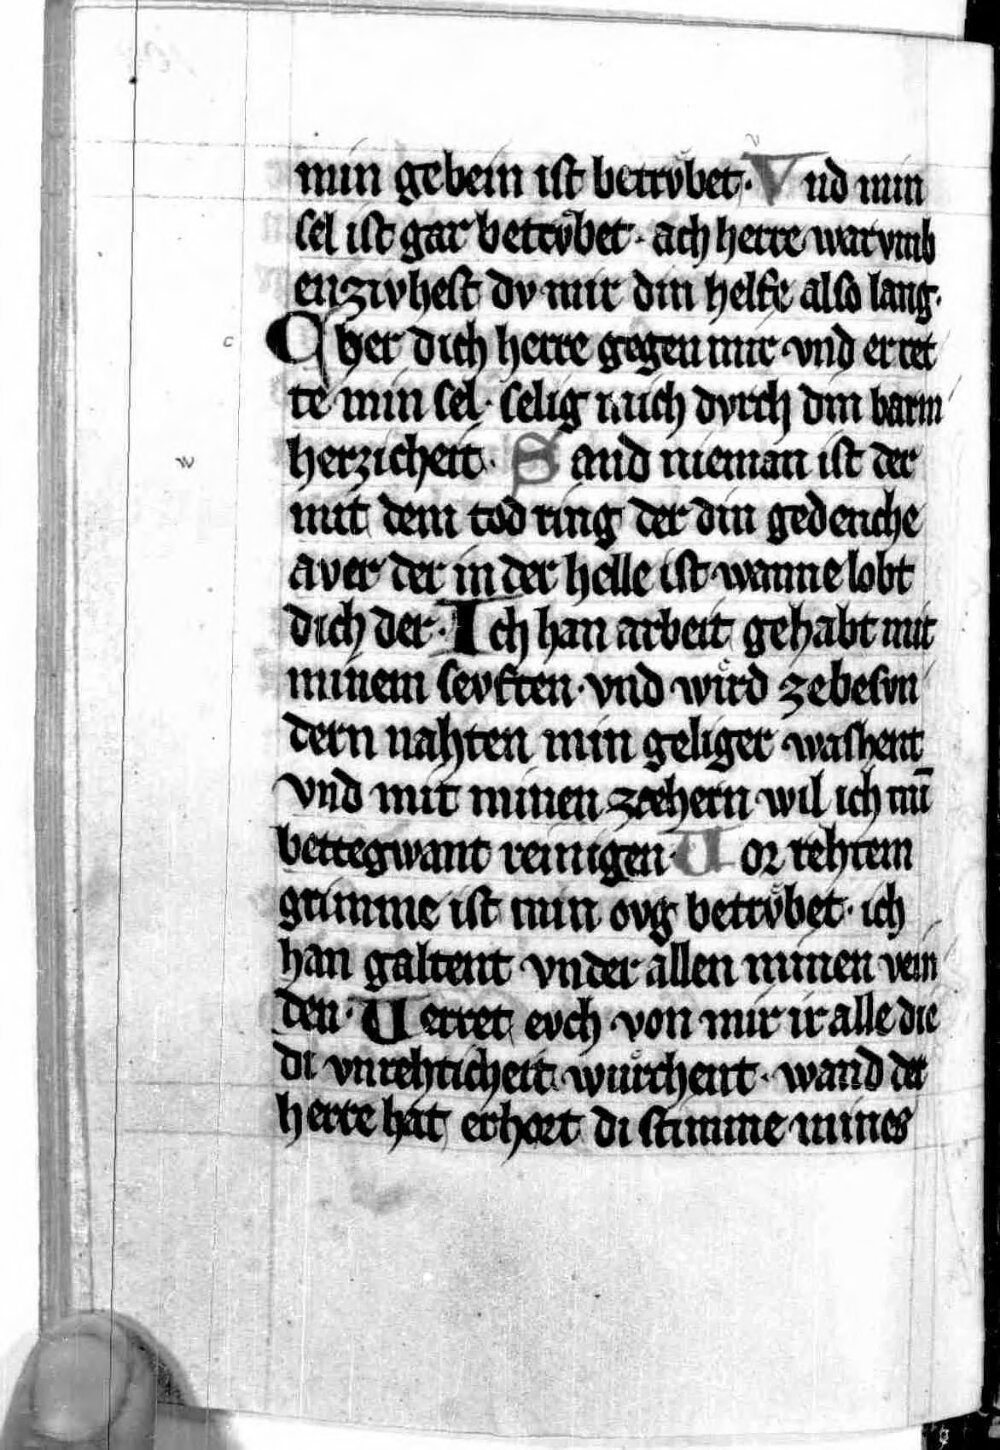 min gebein ist betrvͦbet· Vnd min
sel ist gar betrvͦbet· ach herre warvmb
enzivhest dv mir din helfe also lang·
Cher dich herre gegen mir vnd erret
te min sel· selig mich dvrch din barm
herzicheit· Sand nieman ist der
mit dem tod ring der din gedenche
aver der in der helle ist· wanne lobt
dich der· Ich han arbeit gehabt mit
minem sevften· vnd wird zebesvn
dern nahten min geliger washent
vnd mit minen zæhern wil ich mī
bettegwant reinigen· Vor rehtem
grimme ist min ovg betrvͦbet· ich
han galtent vnder allen minen vein
den· Verret evch von mir ir alle die
di vnrehticheit wuͤrchent· wand der
herre hat erhort di stimme mines